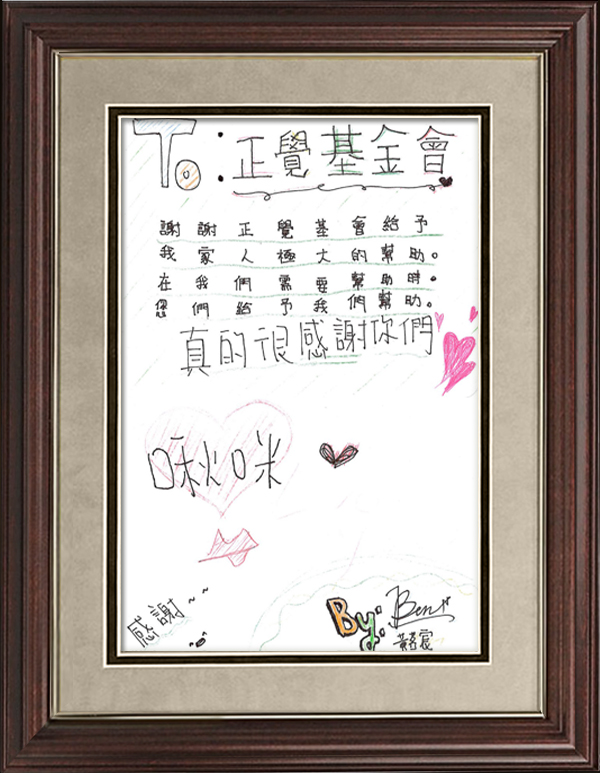 To:正覺基金會
謝謝正覺基會給予
我家人極大的幫助。
在我們需要幫助時。
您們給予我們幫助。
真的很感謝你們
啾咪
感謝~~
By: Ben